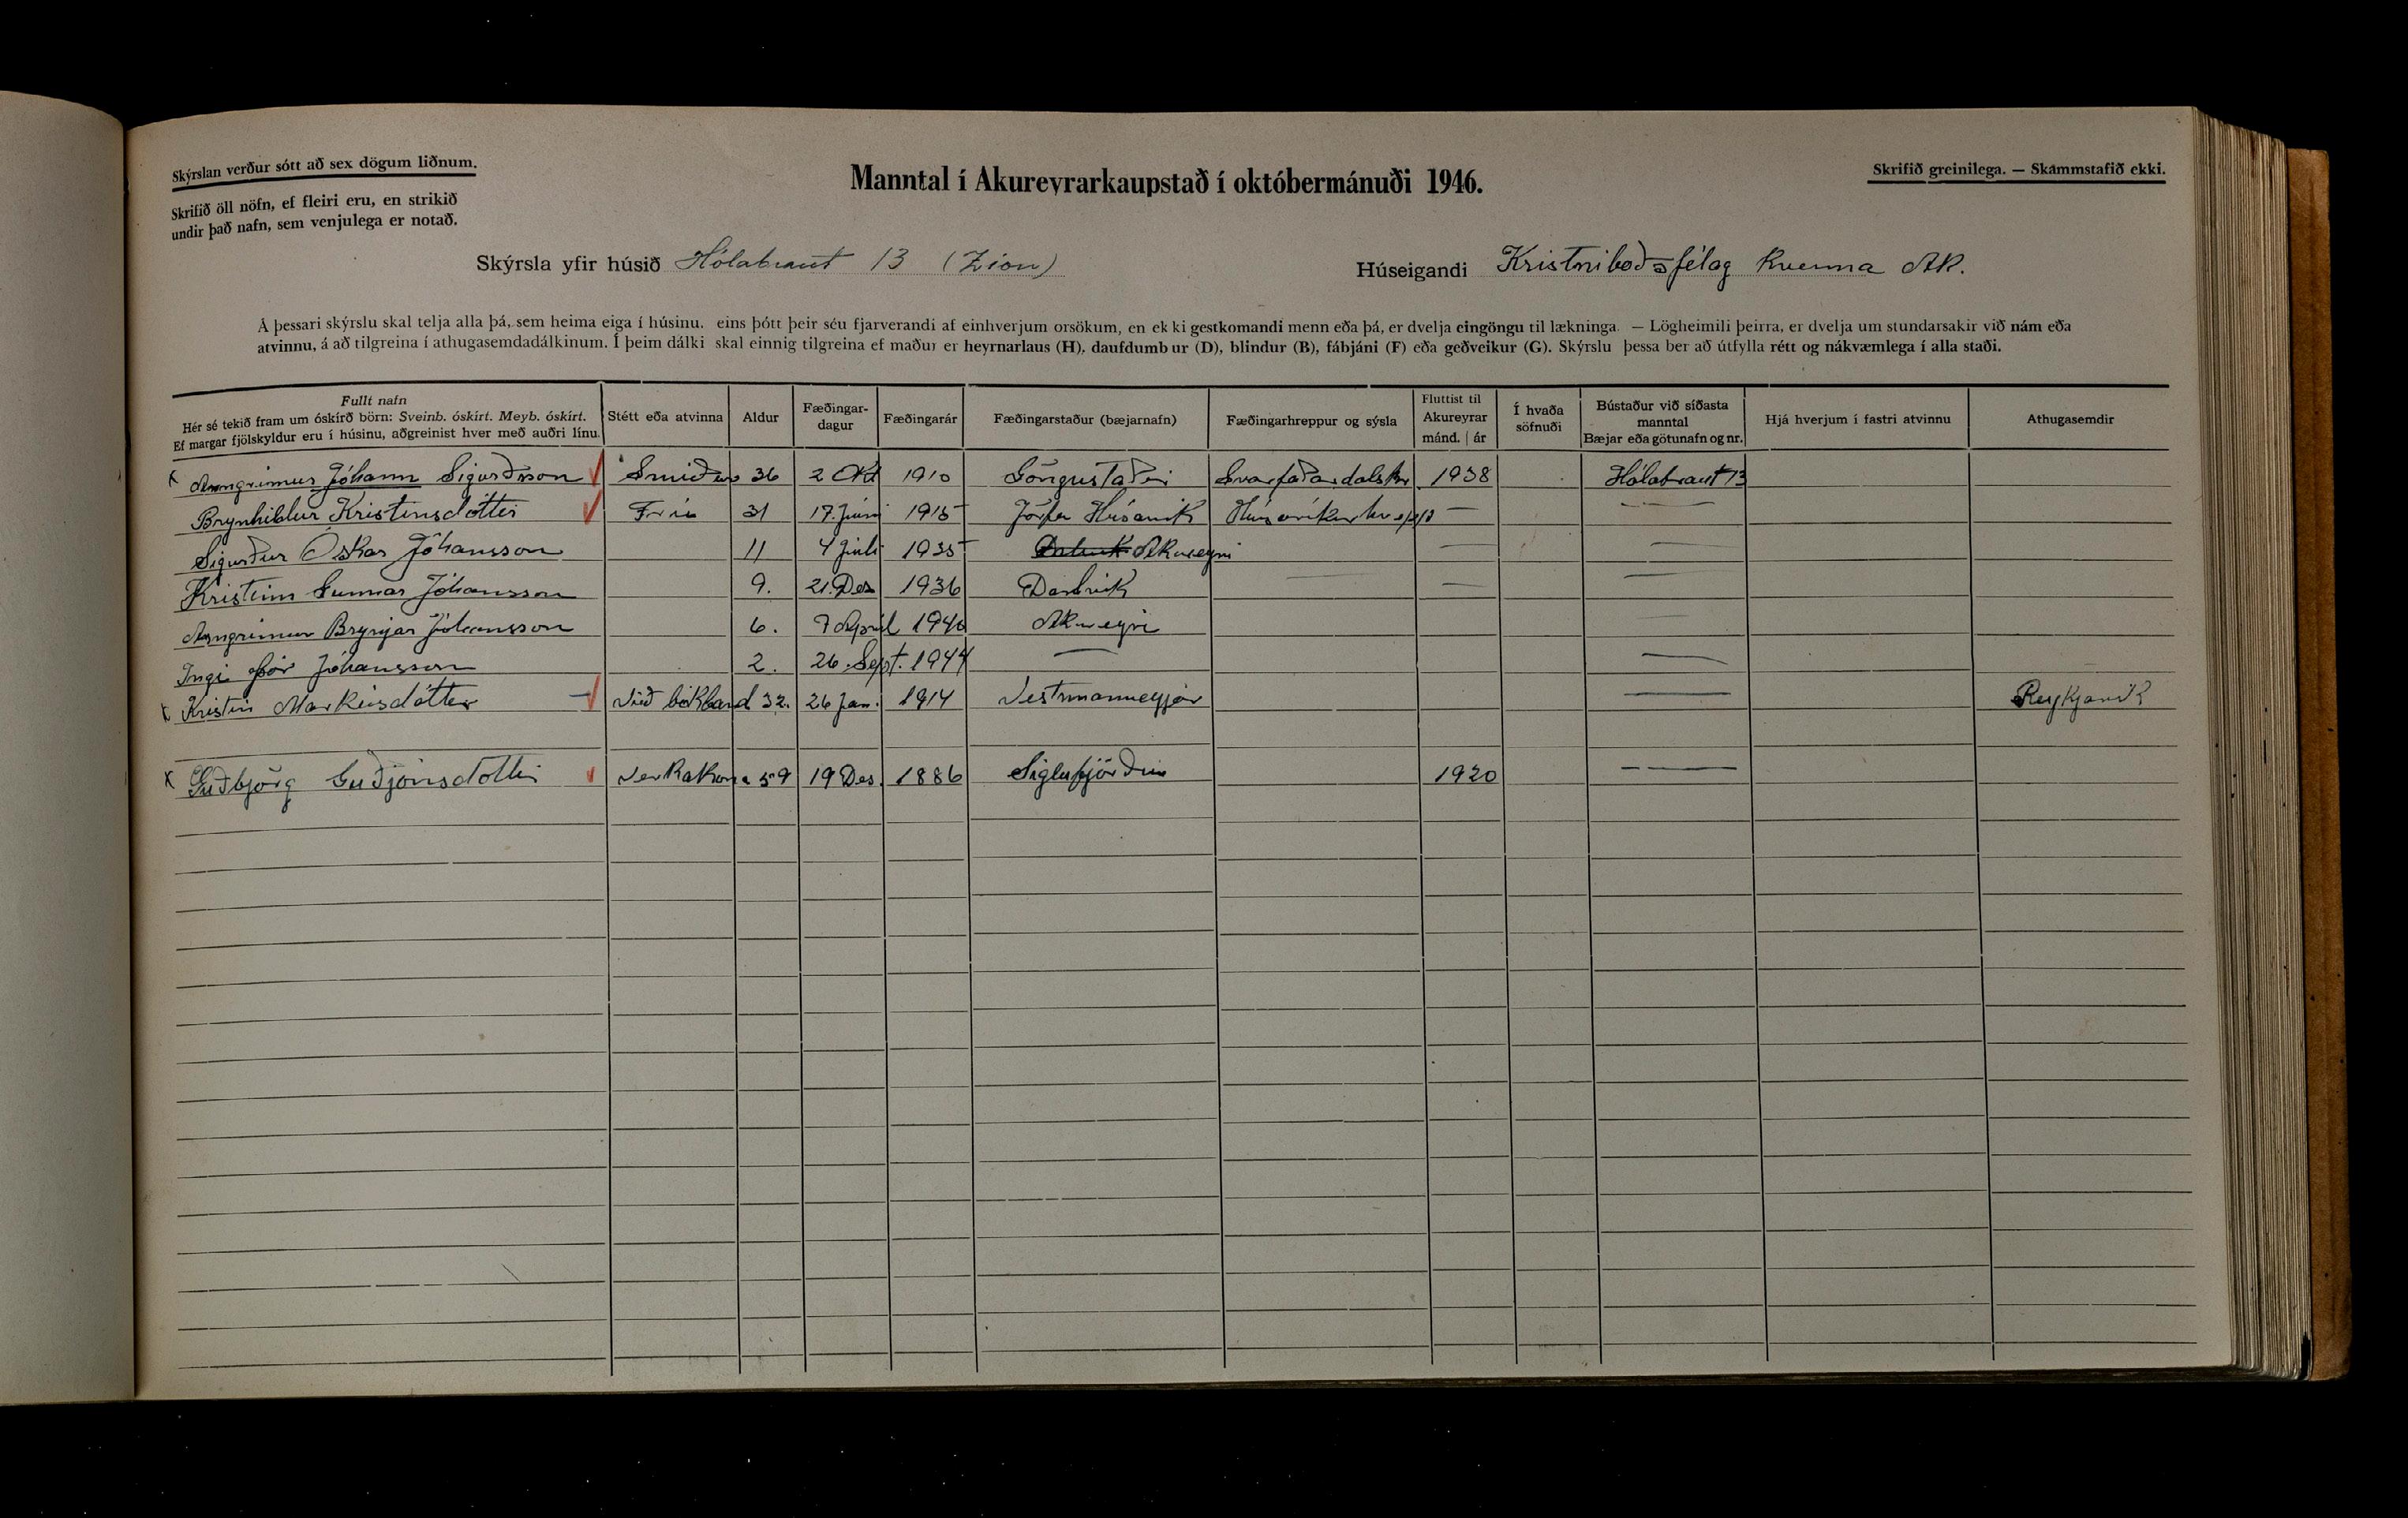 Skýrslan verður sótt að sex dögum liðnum.
Skrifið öll nöfn, ef fleiri eru, en strikið
undir það nafn, sem venjulega er notað.
Manntal í Akureyrarkaupstað í októbermánuði 1946.
Skrifið greinilega. — Skammstafið ekki.
Skýrsla yfir húsið Hólabraut 13 (Zíon)
Húseigandi Kristniboðsfélag kvenna Ak.
Á þessari skýrslu skal telja alla þá, sem heima eiga í húsinu, eins þótt þeir séu fjarverandi af einhverjum orsökum, en ekki gestkomandi menn eða þá, er dvelja eingöngu til lækninga. — Lögheimili þeirra, er dvelja um stundarsakir við nám eða
atvinnu, á að tilgreina í athugasemdadálkinum. Í þeim dálki skal einnig tilgreina ef maður er heyrnarlaus (H), daufdumbur (D), blindur (B), fábjáni (F) eða geðveikur (G). Skýrslu þessa ber að útfylla rétt og nákvæmlega í alla staði.
Fullt nafn
Hér sé tekið fram um óskírð börn: Sveinb. óskírt. Meyb. óskírt.
Ef margar fjölskyldur eru í húsinu, aðgreinist hver með auðri línu.
Stétt eða atvinna
Aldur
Fæðingar-
dagur
Fæðingarár
Fæðingarstaður (bæjarnafn)
Fæðingarhreppur og sýsla
Fluttist til
Akureyrar
mánd. | ár
Í hvaða
söfnuði
Bústaður við síðasta
manntal
Bæjar eða götunafn og nr.
Hjá hverjum í fastri atvinnu
Athugasemdir
x Arngrímur Jóhann Sigurðsson Smiður 36 2 Okt 1910 Göngustaðir Svarfaðardalshr 1938 Hólabraut 13
Brynhildur Kristinsdóttir Frú 31 17. Júní 1915 Jörfa Húsavík Húsavíkurhrepp — —
Sigurður Óskar Jóhansson 11 4 Júlí 1935 Dalvík Akureyri — —
Kristinn Gunnar Jóhansson 9. 21. Des 1936 Dalvík — —
Arngrímur Brynjar Jóhansson 6. 7 Apríl 1940 Akureyri —
Ingi Þór Jóhansson 2. 26. Sept. 1944 — —
x Kristín Markúsdóttir Við bókband 32. 26 Jan. 1914 Vestmanneyjar — Reykjavík
x Guðbjörg Guðjónsdóttir Verkakona 59 19 Des. 1886 Siglufjörður 1920 — —